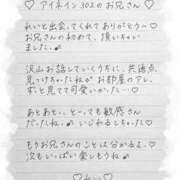 ♡ アイネイン302のお兄さん ♡
れいと出会ってくれてありがとうー
お兄さんの初めて、頂いちゃい
ました♪
沢山お話していくうちに、共通点
見つけちゃったねが お部屋のアレ、
ずっと見てて可愛いかったー
あとあとっ、とっても敏感さん
だったねっ いじわるしちゃった♡
もうお兄さんのこと分かるよ
次もいっぱい楽しもうね♪
♡ れい ♡